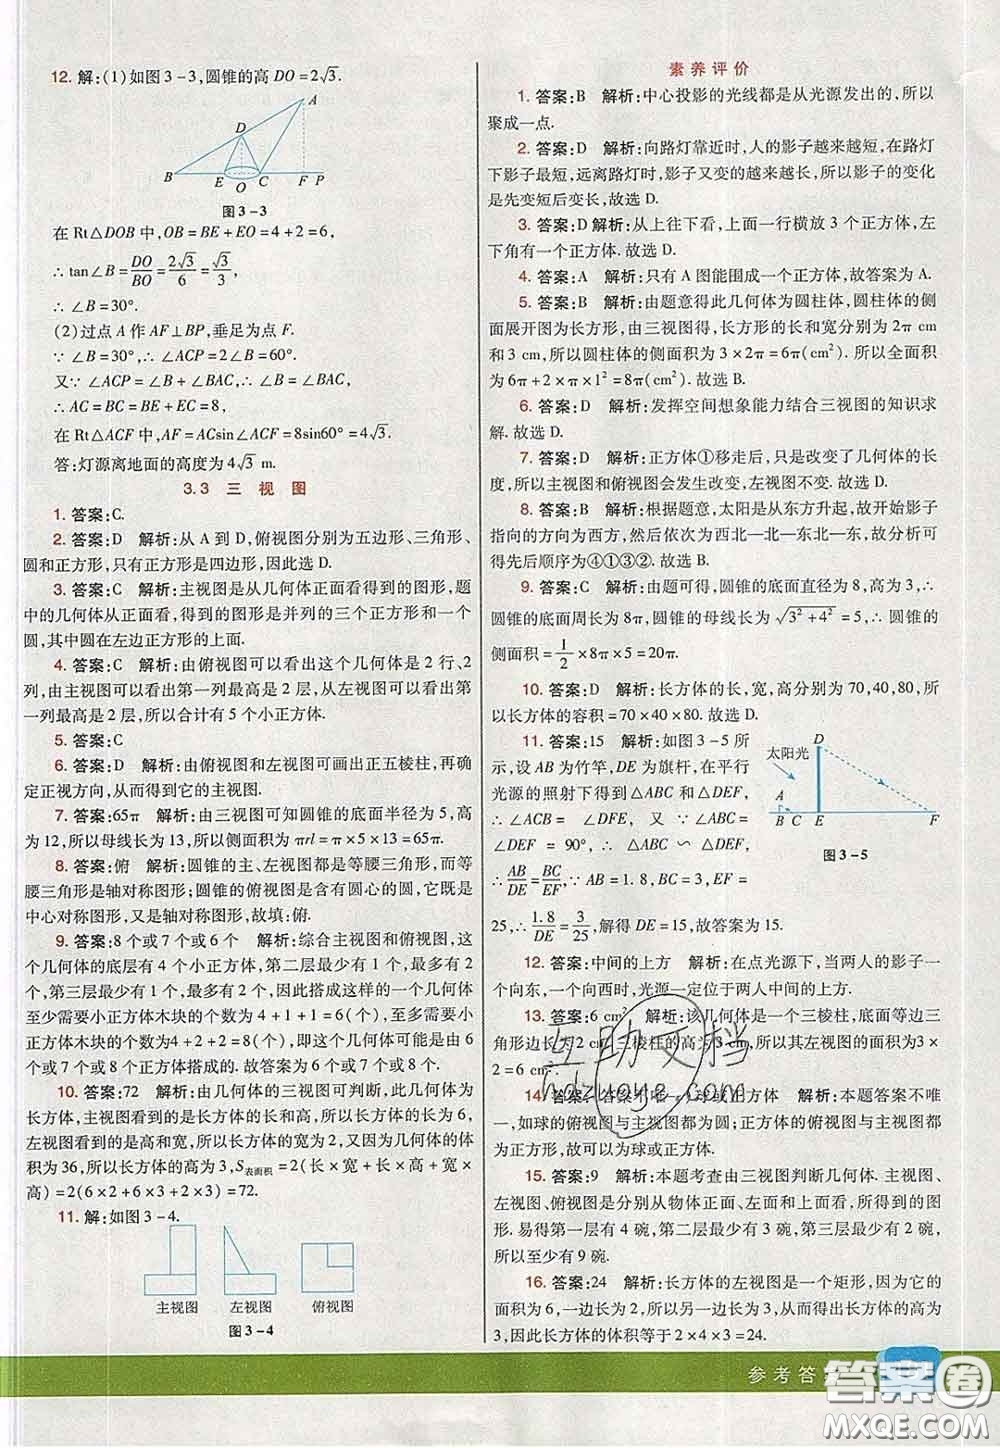 12. 解:(1)如图3-3,圆锥的高DO=2√3.
A
D
B
E
O
C
F
P
图3-3
在Rt△DOB中,OB=BE+EO=4+2=6,
∴tan∠B=DO/BO=2√3/6=√3/3,
∴∠B=30°.
(2)过点A作AF⊥BP,垂足为点F.
∵∠B=30°,∴∠ACP=2∠B=60°.
又∵∠ACP=∠B+∠BAC,∴∠B=∠BAC,
∴AC=BC=BE+EC=8,
在Rt△ACF中,AF=ACsin∠ACF=8sin60°=4√3.
答:灯源离地面的高度为4√3 m.
3.3 三视图
1. 答案:C.
2. 答案:D 解析:从A到D,俯视图分别为五边形、三角形、
圆和正方形,只有正方形是四边形,因此选D.
3. 答案:C 解析:主视图是从几何体正面看得到的图形,题
中的几何体从正面看,得到的图形是并列的三个正方形和一个
圆,其中圆在左边正方形的上面.
4. 答案:C 解析:由俯视图可以看出这个几何体是2行、2
列,由主视图可以看出第一列最高是2层,从左视图可以看出第
一列最高是2层,所以合计有5个小正方体.
5. 答案:C
6. 答案:D 解析:由俯视图和左视图可画出正五棱柱,再
确定正视方向,从而得到它的主视图.
7. 答案:65π 解析:由三视图可知圆锥的底面半径为5,高
为12,所以母线长为13,所以侧面积为πrl=π×5×13=65π.
8. 答案:俯 解析:圆锥的主、左视图都是等腰三角形,而等
腰三角形是轴对称图形;圆锥的俯视图是含有圆心的圆,它既是
中心对称图形,又是轴对称图形,故填:俯.
9. 答案:8个或7个或6个 解析:综合主视图和俯视图,这
个几何体的底层有4个小正方体,第二层最少有1个,最多有2
个,第三层最少有1个,最多有2个,因此搭成这样的几何体
至少需要小正方体木块的个数为4+1+1=6(个),至多需要小
正方体木块的个数为4+2+2=8(个),所以这个几何体可能是
由6或7或8个正方体搭成的.
10. 答案:72 解析:由几何体的三视图可判断,此几何体为
长方体,主视图看到的是长方体的长和高,所以长方体的长为6,
左视图看到的是高和宽,所以长方体的宽为2,又因为几何体的体
积为36,所以长方体的高为3,S表面积=2(长×宽+长×高+宽×
高)=2(6×2+6×3+2×3)=72.
11. 解:如图3-4.
主视图 左视图 俯视图
图3-4
素养评价
1. 答案:B 解析:中心投影的光线都是从光源发出的,所以
聚成一点.
2. 答案:D 解析:向路灯靠近时,人的影子越来越短,在路灯
下影子最短,远离路灯时,影子又变的越来越长,所以影子的变化
是先变短后变长,故选D.
3. 答案:D 解析:从上往下看,上面一行横放3个正方体,左
下角有一个正方体.故选D.
4. 答案:A 解析:只有A图能围成一个正方体,故答案为A.
5. 答案:B 解析:由题意得此几何体为圆柱体,圆柱体的侧
面展开图为长方形,由三视图得,长方形的长和宽分别为2π cm
和3 cm,所以圆柱体的侧面积为3×2π=6π(cm²),所以全面积
为6π+2×π×1²=8π(cm²).故选B.
6. 答案:D 解析:发挥空间想象能力结合三视图的知识求
解.故选D.
7. 答案:D 解析:正方体①移走后,只是改变了几何体的长
度,所以主视图和俯视图会发生改变,左视图不变.故选D.
8. 答案:B 解析:根据题意,太阳是从东方升起,故开始影子
指向的方向为西方,然后依次为西北—北—东北—东,故分析可
得先后顺序为④①③②.故选B.
9. 答案:C 解析:由题可得,圆锥的底面直径为8,高为3,∴
圆锥的底面周长为8π,圆锥的母线长为√3²+4²=5,∴圆锥的
侧面积=1/2×8π×5=20π.
10. 答案:D 解析:长方体的长,宽,高分别为70,40,80,所
以长方体的容积=70×40×80.故选D.
11. 答案:15 解析:如图3-5所
示,设AB为竹竿,DE为旗杆,在平行
光源的照射下得到△ABC和△DEF,
∠ACB=∠DFE,又∵∠ABC=
∠DEF=90°,∴△ABC∽△DEF,
∴AB/DE=BC/EF,∵AB=1.8,BC=3,EF=
25,∴1.8/DE=3/25,解得DE=15,故答案为15.
太阳光
D
A
B
C
E
F
图3-5
12. 答案:中间的上方 解析:在点光源下,当两人的影子一
个向东,一个向西时,光源一定位于两人中间的上方.
13. 答案:6 cm² 解析:该几何体是一个三棱柱,底面等边三
角形边长为2 cm,三棱柱的高为3 cm,所以其左视图的面积为3×
2=6 cm².
14. 答案:答案不唯一,球或正方体 解析:本题答案不唯
一,如球的俯视图与主视图都为圆;正方体的俯视图与主视图都
为正方形,故可以为球或正方体.
15. 答案:9 解析:本题考查由三视图判断几何体.主视图、
左视图、俯视图是分别从物体正面、左面和上面看,所得到的图
形.易得第一层有4碗,第二层最少有3碗,第三层最少有2碗,
所以至少有9碗.
16. 答案:24 解析:长方体的左视图是一个矩形,因为它的
面积为6,一边长为2,所以另一边长为3,所以长方体的高为
3,所以长方体的体积等于2×4×3=24.
互助文档
hdzuoye.com
参考答
答案圈
MXQE.COM